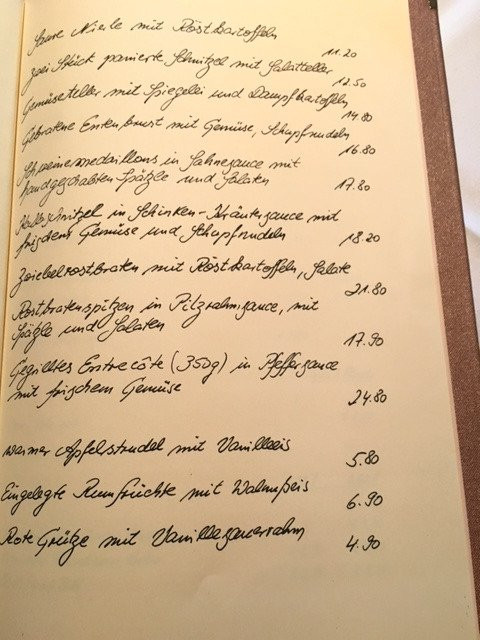 Saure Nierle mit Röstkartoffeln
11.20
zwei Stück panierte Schnitzel mit Salatteller
12.50
Gemüseteller mit Spiegelei und Dampfkartoffeln
14.80
Gebratene Entenbrust mit Gemüse, Schupfnudeln
16.80
Schweinemedaillons in Sahnesauce mit
handgeschabten Spätzle und Salaten
17.80
Kalbschnitzel in Schinken-Kräutersauce mit
frischem Gemüse und Schupfnudeln
18.20
Zwiebelrostbraten mit Röstkartoffeln, Salate
21.80
Rostbratenspitzen in Pilzrahmsauce, mit
Spätzle und Salaten
17.90
Gegrilltes Entrecôte (350g) in Pfeffersauce
mit frischem Gemüse
24.80
warmer Apfelstrudel mit Vanilleeis
5.80
Eingelegte Rumfrüchte mit Walnußeis
6.90
Rote Grütze mit Vanillesauerrahm
4.90